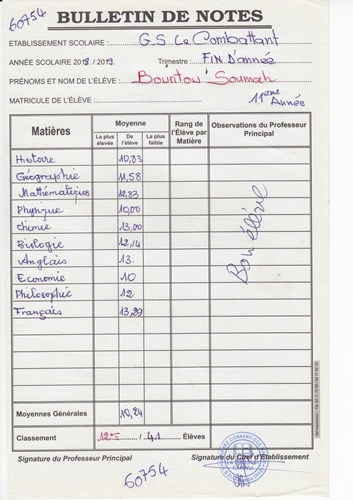 60754
BULLETIN DE NOTES
ETABLISSEMENT SCOLAIRE : G.S Le Combattant
ANNÉE SCOLAIRE 2018 / 2019 Trimestre : FIN D'année
PRÉNOMS ET NOM DE L'ÉLÈVE : Bountou Soumah
MATRICULE DE L'ÉLÈVE : 11ème Année
Matières Moyenne Rang de l'Élève par Matière Observations du Professeur Principal
La plus élevée De l'élève La plus faible
Histoire 10,83
Géographie 11,58
Mathématiques 12,83
Physique 10,00
Chimie 13,00
Biologie 12,14
Anglais 13.
Economie 10
Philosophie 12
Français 13,29
Bon élève
Moyennes Générales 10,24
Classement 12ème / 41 Élèves
Signature du Professeur Principal Signature du Chef d'Établissement
60754